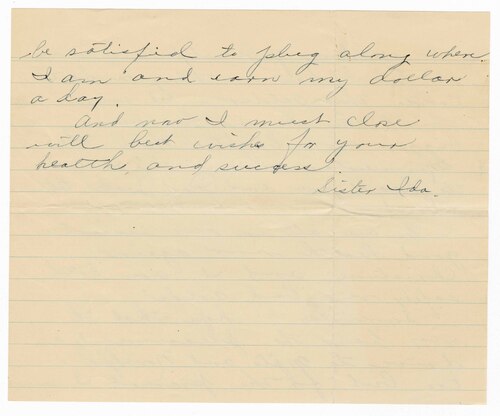 be satisfied to plug along where
I am and earn my dollar
a day.
And now I must close
with best wishes for your
health, and success.
Sister Ida.